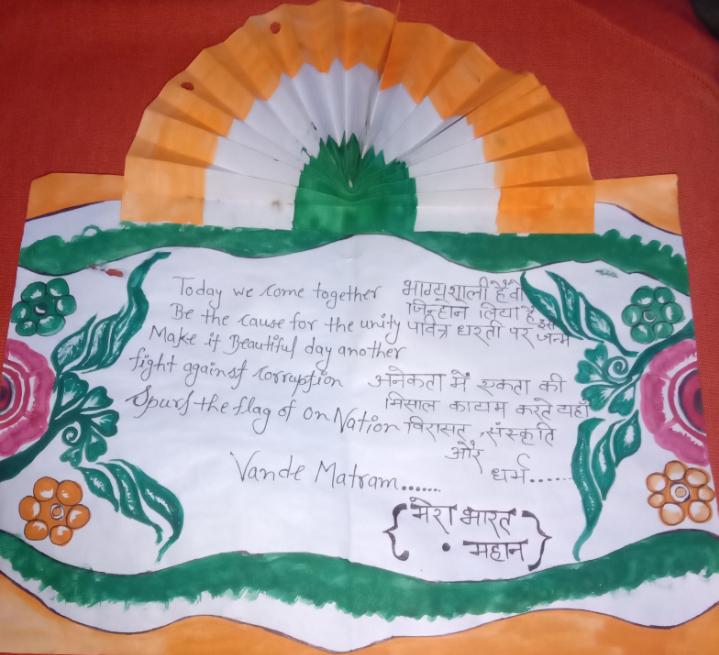 Today we come together
Be the cause for the unity
Make it Beautiful day another
fight against corruption
Spurs the flag of on Nation
Vande Matram......
भाग्यशाली है वो
जिन्होने लिया है इस
पवित्र धरती पर जन्म
अनेकता में एकता की
मिसाल कायम करते यहाँ
विरासत, संस्कृति
और
धर्म......
{मेरा भारत
• महान}